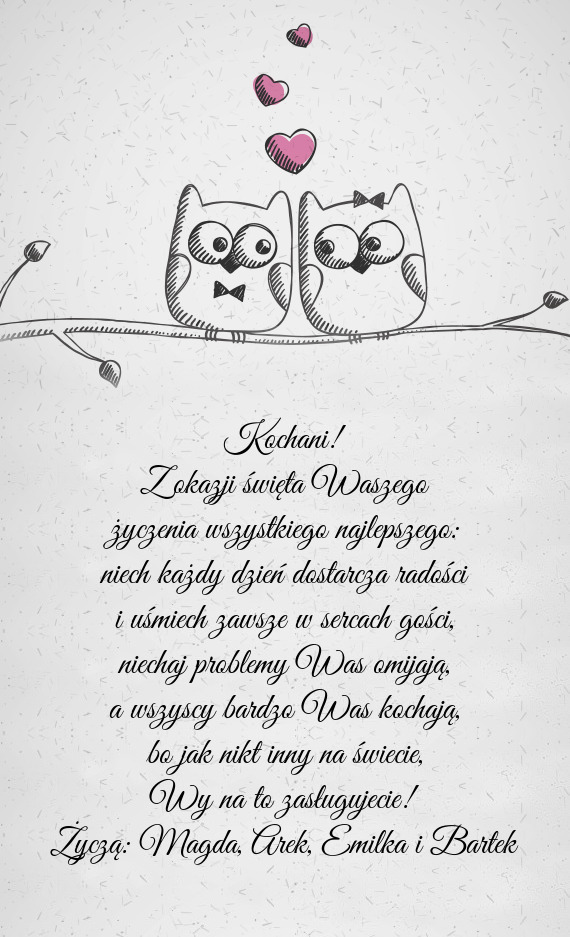 Kochani!
Zokazji święta Waszego
życzenia wszystkiego najlepszego:
niech każdy dzień dostarcza radości
i uśmiech zawsze w sercach gości,
niechaj problemy Was omijają,
a wszyscy bardzo Was kochają,
bo jak nikt inny na świecie,
Wy na to zasługujecie!
Życzą: Magda, Arek, Emilka i Bartek